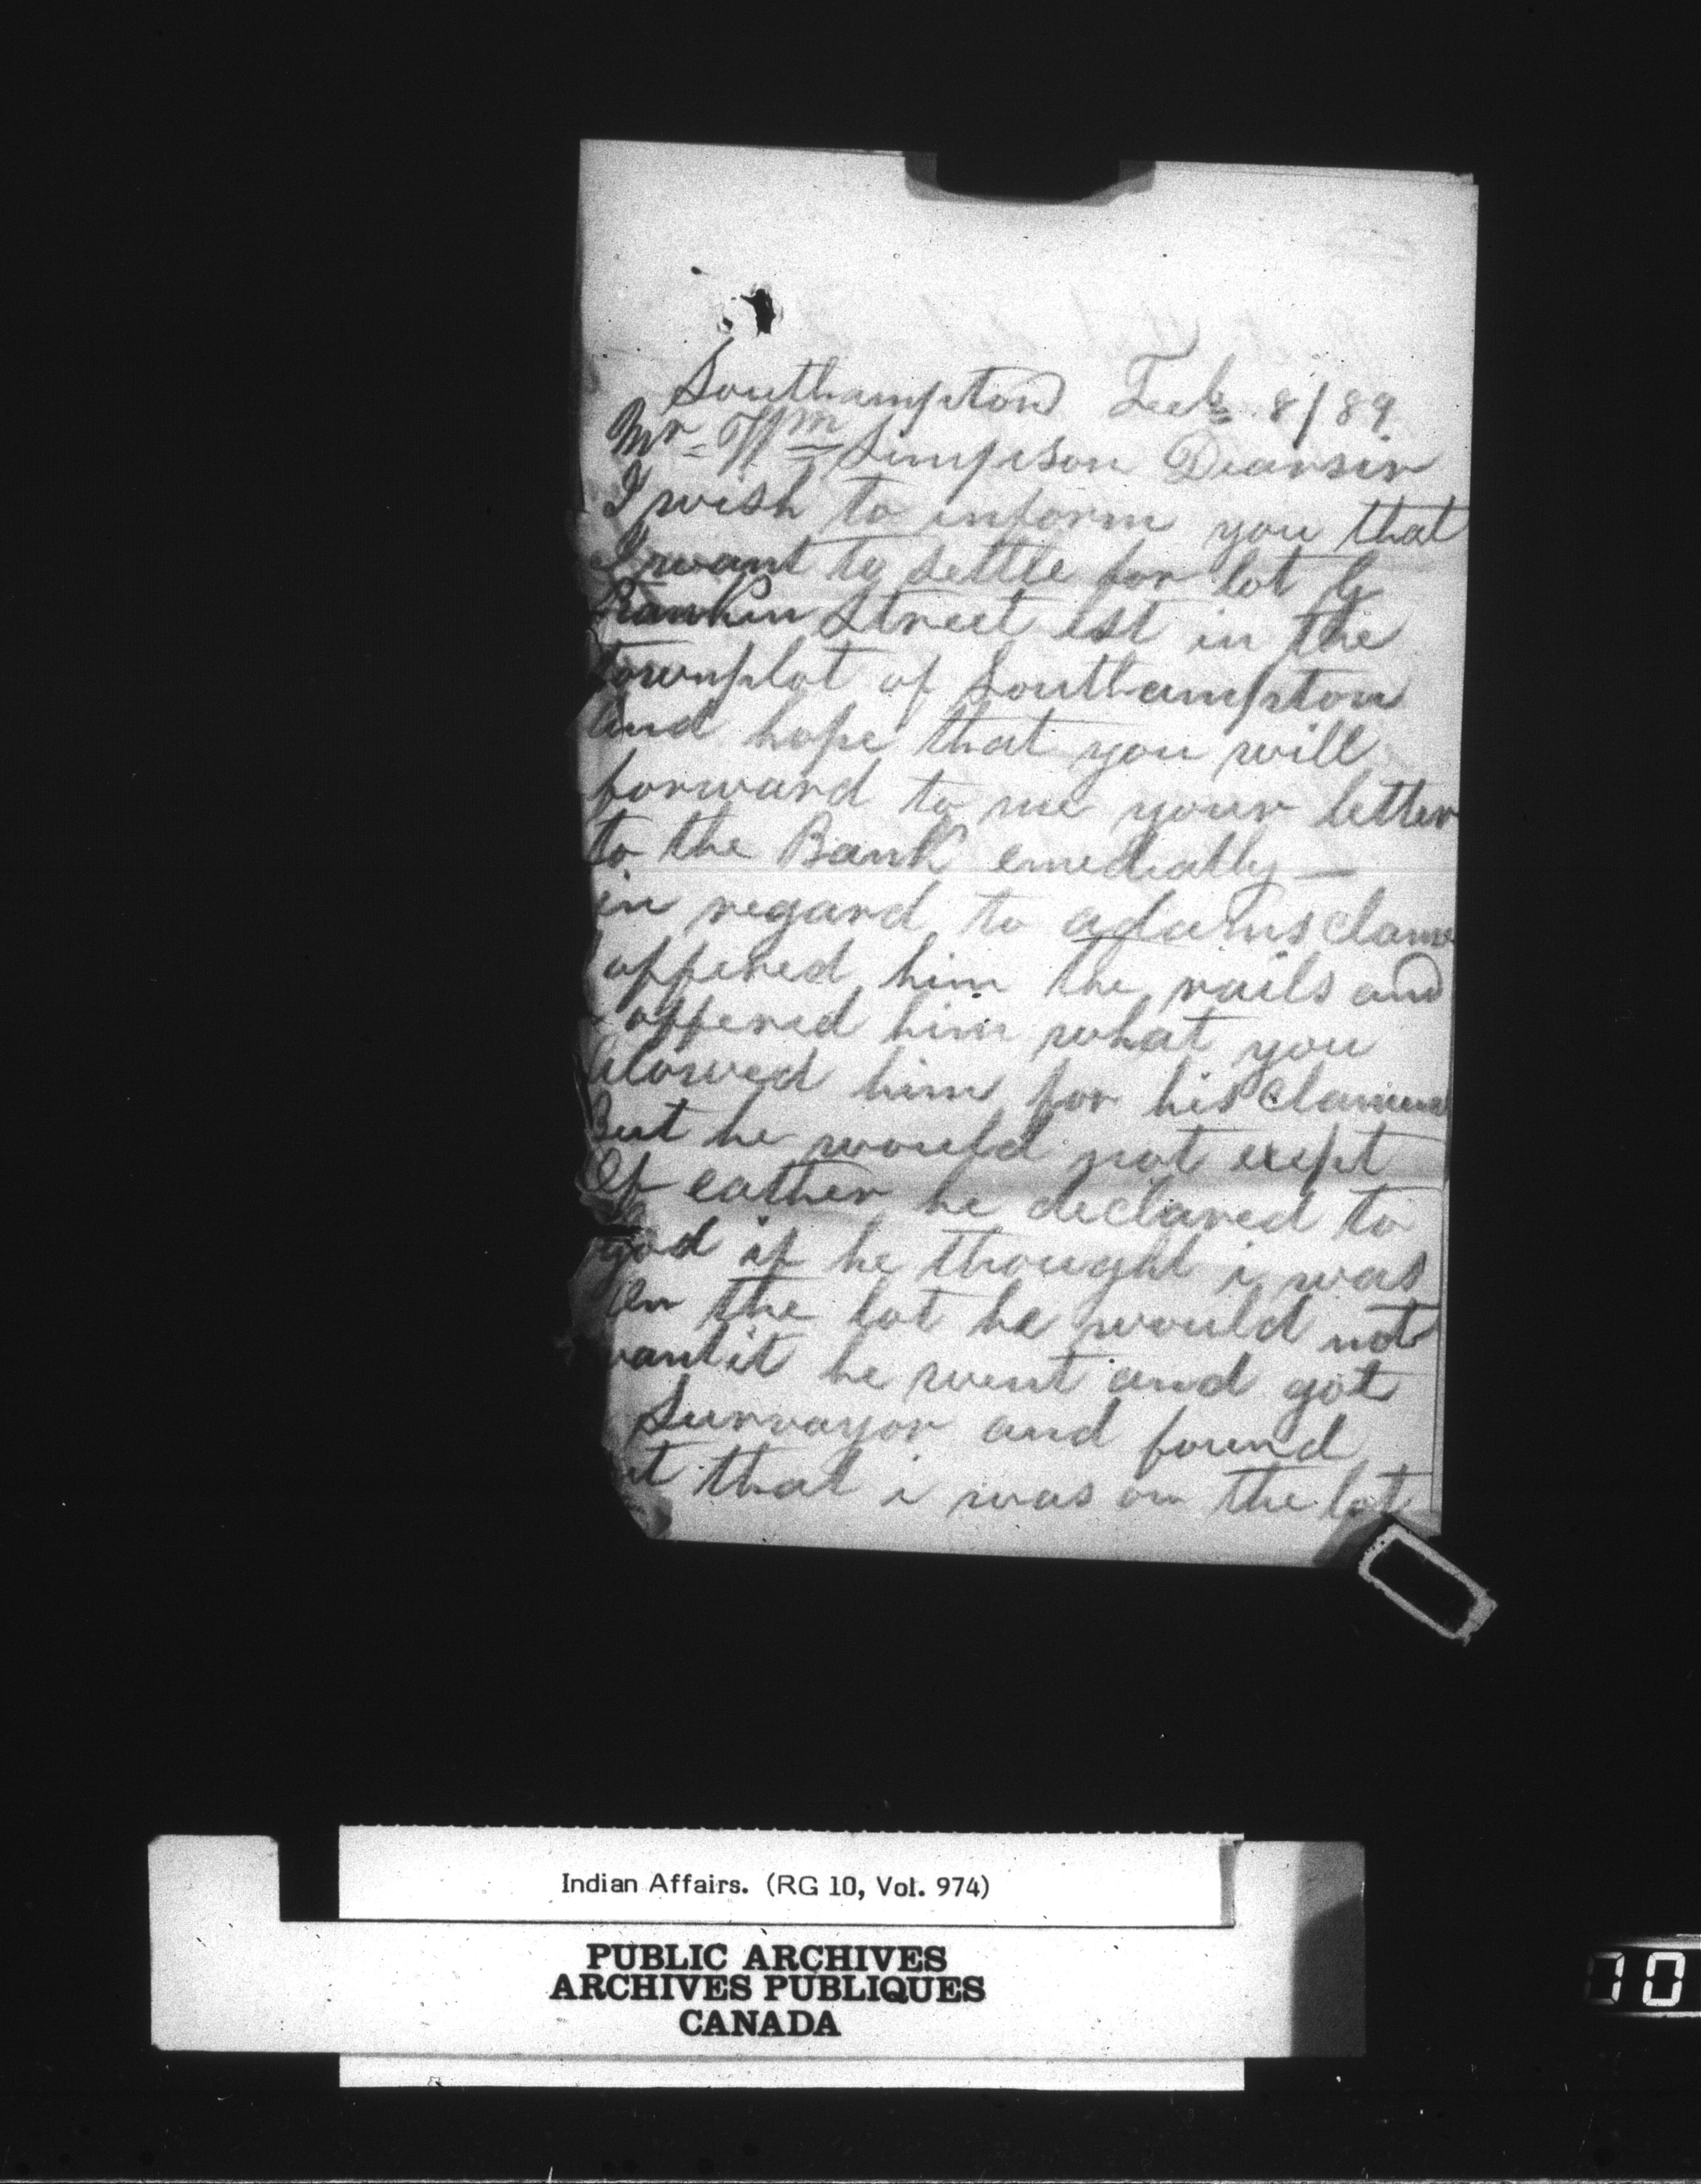 Southampton Feb 8/89
Mr Wm Simpson Dearsir
I wish to inform you that
I want to settle for lot 6
Rankin Street Est in the
townplot of Southampton
and hope that you will
forward to me your letter
to the Bank emediatly —
in regard to adams clame
offered him the rails and
i offered him what you
alowed him for his
But he would not exept
Of eather he declared to
god if he thought i was
on the lot he would not
want it he went and got
Survayor and found
that i was on the lot
Indian Affairs. (RG 10, Vol. 974)
PUBLIC ARCHIVES
ARCHIVES PUBLIQUES
CANADA
10